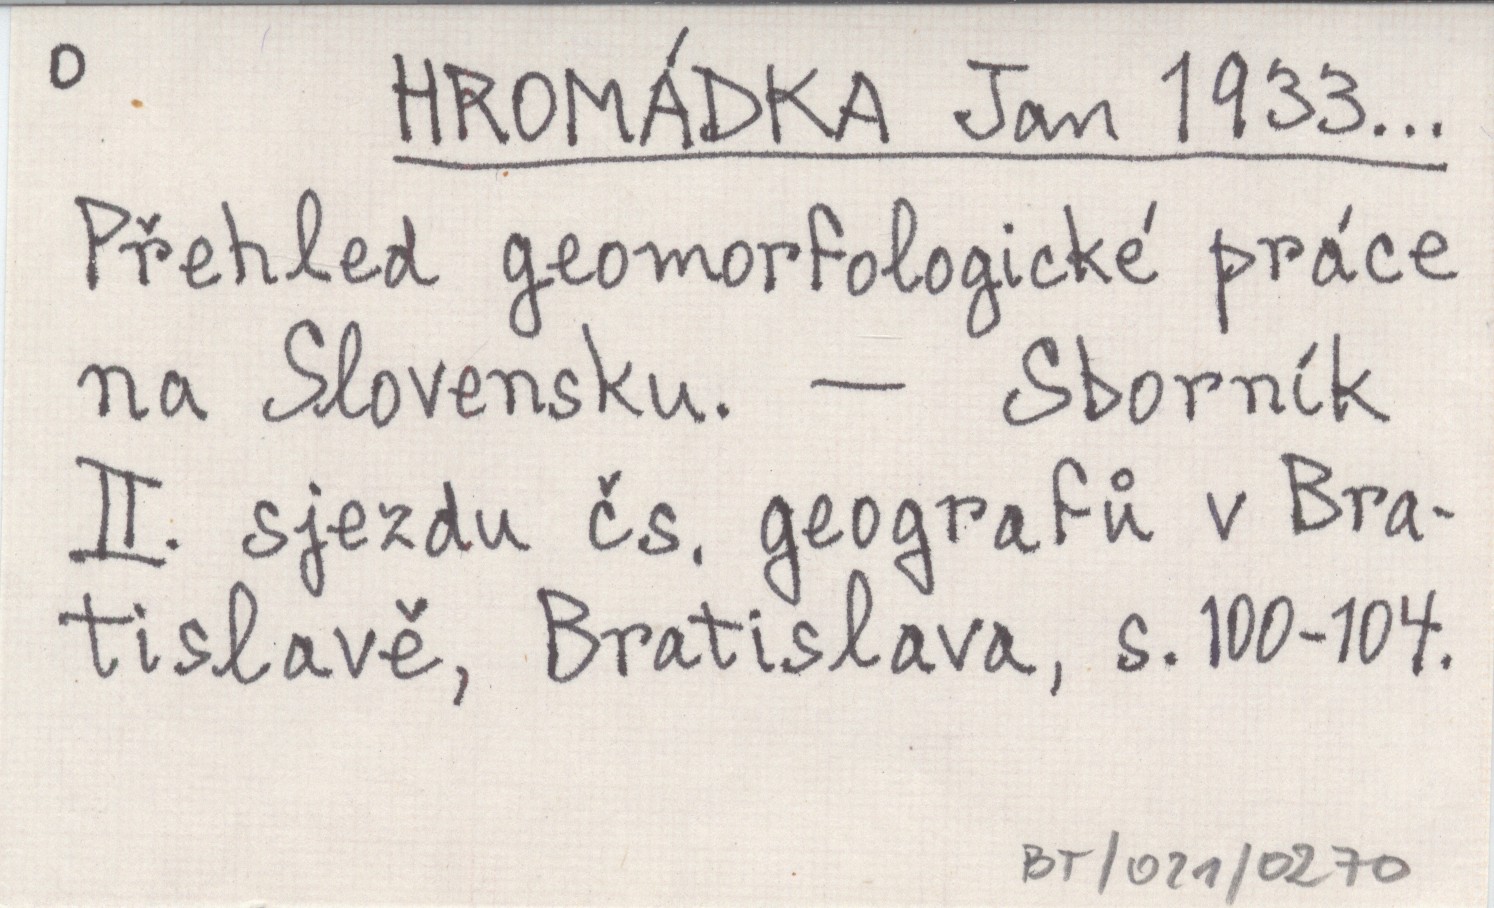 O
HROMÁDKA Jan 1933...
Přehled geomorfologické práce
na Slovensku. — Sborník
II. sjezdu čs. geografů v Bra-
tislavě, Bratislava, s. 100-104.
BT/021/0270